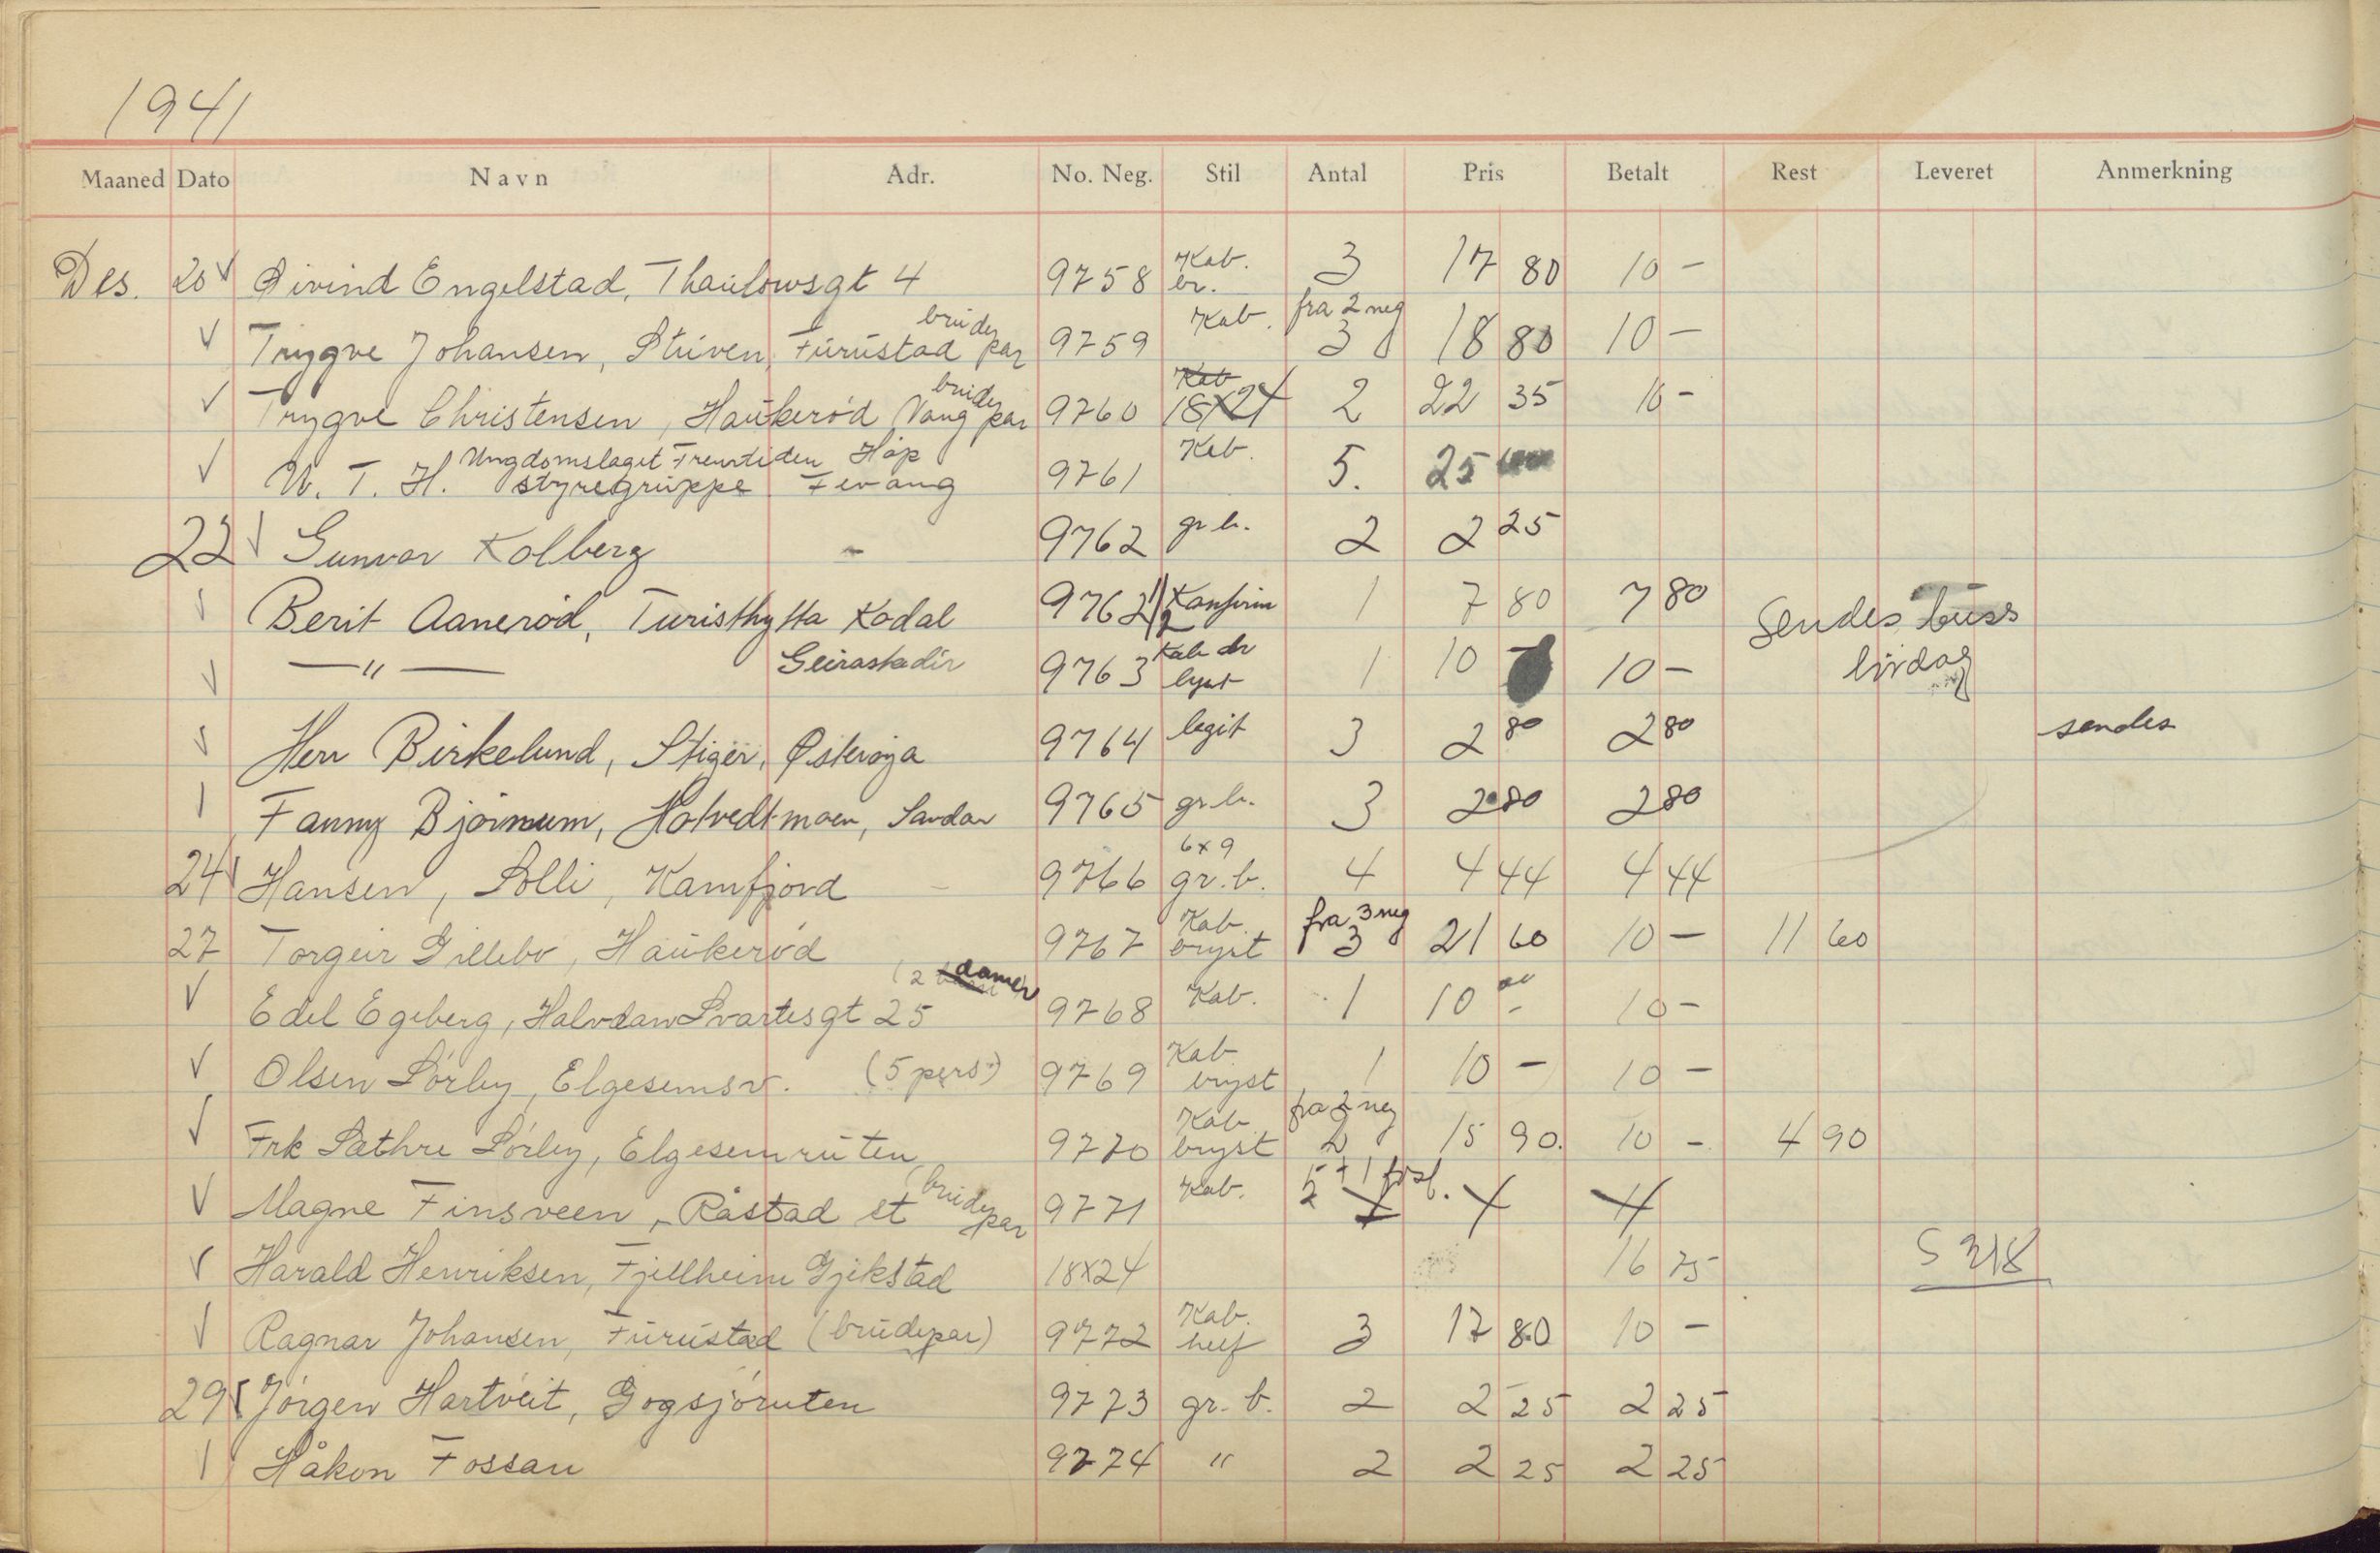 1941
Maaned Dato Navn Adr. No. Neg. Stil Antal Pris Betalt Rest Leveret Anmerkning
Des. 20 √ Øivind Engelstad, Thaulowsgt 4 9758 Kab. br. 3 17 80 10 -
√ Trygve Johansen, Stuven, Furustad brudepar 9759 Kab. fra 2 neg 3 18 80 10 -
√ Trygve Christensen, Haukerød Vang brudepar 9760 Kab 18x24 2 22 35 10 -
√ U. T. H. Ungdomslaget Fremtiden Håp styregruppe Fevang 9761 Kab. 5. 25
22 √ Gunvor Kolberg - 9762 gr b. 2 2 25
√ Berit Aanerød, Turisthytta Kodal 9762 1/2 Konfirm 1 7 80 7 80 Sendes buss
√ —"— 9763 Kab lyst 1 10 - 10 - lørdag
√ Herr Birkelund, Stiger, Østerøya 9764 legit 3 2 80 2 80 sendes
√ Fanny Bjørnum, Hotvedtmoen, Sandar 9765 gr.b. 3 2 80 2 80
24 √ Hansen, Solli, Kamfjord 9766 6x9 gr.b. 4 4 44 4 44
27 Torgeir Gillebo, Haukerød 9767 Kab. bryst fra 3 neg 3 21 60 10 - 11 60
√ Edel Egeberg, Halvdan Svartesgt 25 (2 damer 9768 Kab. 1 10 - 10 -
√ Olsen Sørby, Elgesemsv. (5 pers.) 9769 Kab bryst 1 10 - 10 -
√ Frk Sæthre Sørby, Elgesemruten 9770 Kab bryst fra 2 neg 2 15 90. 10 - 4 90
√ Magne Finsveen, Råstad st brudepar 9771 Kab.
√ Harald Henriksen, Fjellheim Gjekstad 18x24 16 75 S 318
√ Ragnar Johansen, Furustad (brudepar) 9772 Kab. helf 3 17 80 10 -
29 √ Jørgen Hartveit, Gogsjøruten 9773 gr. b. 2 2 25 2 25
√ Håkon Fossan 9774 " 2 2 25 2 25